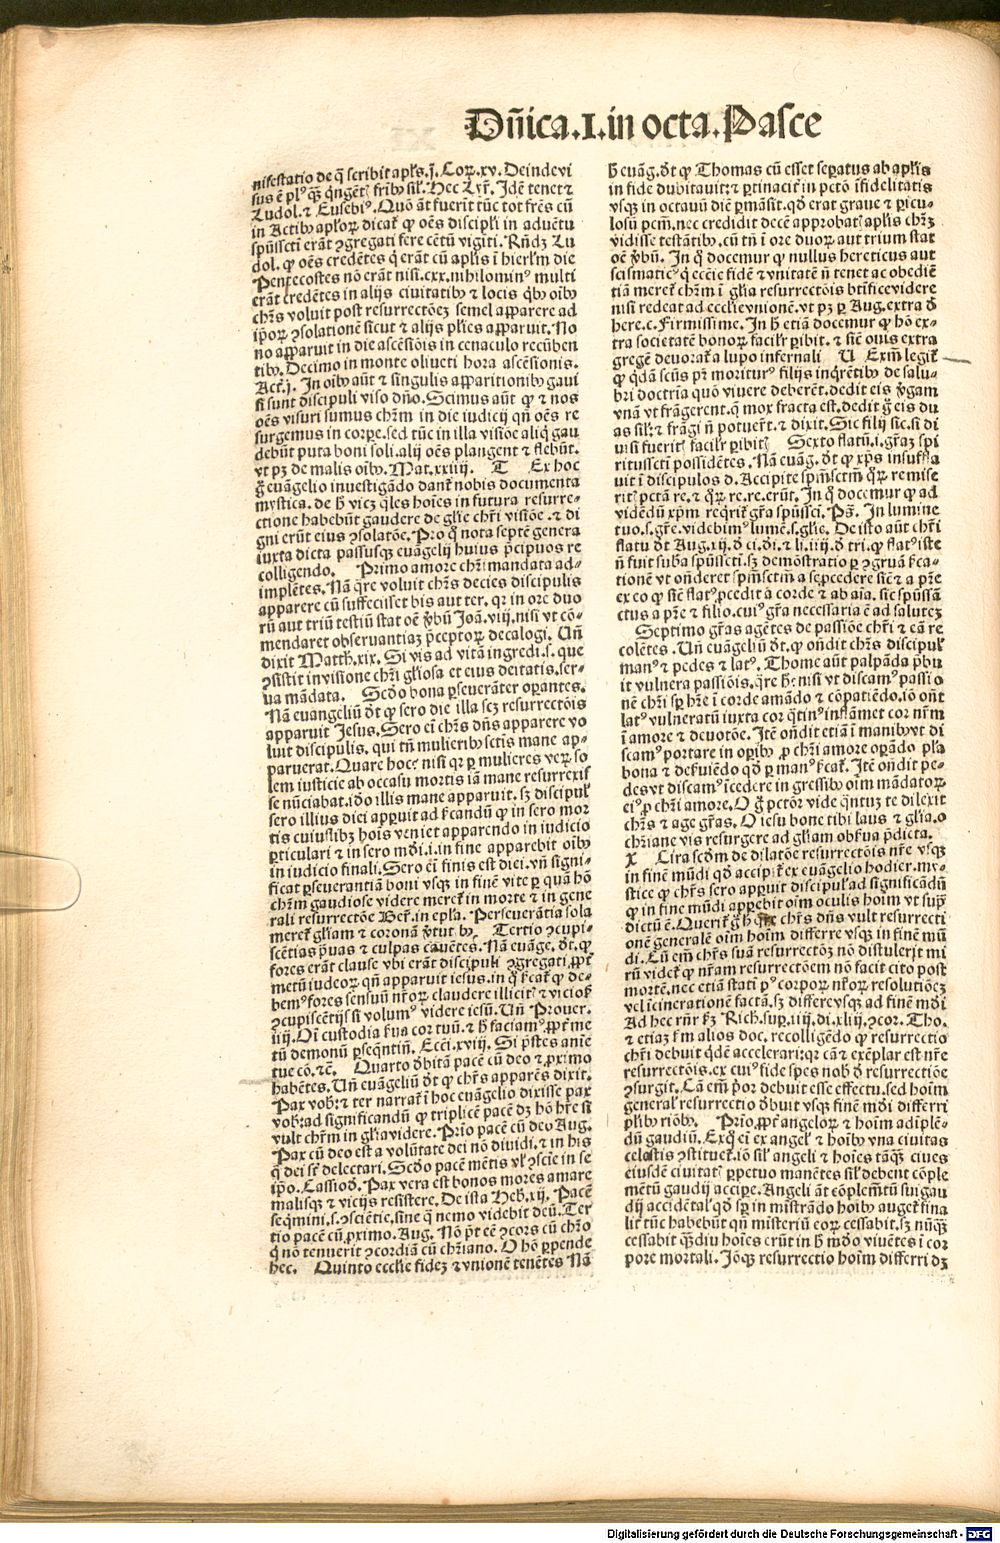 Dn̄ica.I.in octa.Pasce
nifestatio de q̄ scribit apl's.j. Cor.xv. Deinde vi
Ludol. ⁊ Eusebiꝰ. Quō āt fuerīt tūc tot fr̄es cū
in Actibꝫ apl'oꝝ dicat̄ ꝙ oēs discipl'i in aduētu
spūssctī erāt ꝯgregati fere cētū viginti. Rn̄dꝫ Lu
dol. ꝙ oēs credētes q̄ erāt cū apl'is ī hierl'm die
Pentecostes nō erāt nisi.cxx.nihilominꝰ multi
erāt credētes in alijs ciuitatibꝫ ⁊ locis qͥbꝫ oībꝫ
chr̄s voluit post resurrectōeꝫ semel apparere ad
ip̄oꝝ ꝯsolationē sicut ⁊ alijs pl'ies apparuit. No
no apparuit in die ascēsiōis in cenaculo recūben
tibꝫ. Decimo in monte oliueti hora ascēsionis.
Act.j. In oībꝫ aūt ⁊ singulis apparitionibꝫ gaui
si sunt discipuli viso dn̄o. Scimus aūt ꝙ ⁊ nos
oēs visuri sumus chr̄m in die iudicij qn̄ oēs re
surgemus in corpe.sed tūc in illa visiōe aliq̄ gau
debūt puta boni soli.alij oēs plangent ⁊ flebūt.
vt pꝫ de malis oībꝫ. Mat.xxiiij. T Ex hoc
g̊ euāgelio inuestigādo dant̄ nobis documenta
mystica. de h̄ vicꝫ q̄les hoīes in futura resurre-
ctione habebūt gaudere de gl'ie chr̄i visiōe .⁊ di
gni erūt eius ꝯsolatōe. Pro q̊ nota septē genera
iuxta dicta passusqꝫ euāgelij huius p̄cipuos re
colligendo. Primo amore chr̄i mandata ad-
implētes. Nā q̄re voluit chr̄s decies discipulis
apparere cū suffecisset bis aut ter. qꝛ in ore duo
rū aut triū testiū stat oē v̄bū Joā.viij.nisi vt cō-
mendaret obseruantiaꝫ p̄ceptoꝝ decalogi. Un̄
dixit Matth.xix. Si vis ad vitā ingredi.s.que
ꝯsistit in visione chr̄i gl'iosa et eius deitatis.ser-
ua mādata. Scd̄o bona ꝑseuerāter oꝑantes.
Nā euangeliū dt̄ ꝙ sero die illa scꝫ resurrectōis
apparuit Jesus. Sero ei chr̄s dn̄s apparere vo
luit discipulis, qui tn̄ mulieribꝫ sctis mane ap-
paruerat. Quare hoc? nisi qꝛ ꝑ mulieres veꝝ so
lem iusticie ab occasu mortis iā mane resurrexis
se nūciabat. iō illis mane apparuit. sꝫ discipul'
sero illius diei app̄uit ad s̄candū ꝙ in sero mor
tis cuiuslibꝫ hoīs veniet apparendo in iudicio
ꝑticulari ⁊ in sero mūdi.i.in fine apparebit oībꝫ
in iudicio finali. Sero ei finis est diei. vn̄ signi-
ficat ꝑseuerantiā boni vsqꝫ in finē vite ꝑ quā hō
chr̄m gaudiose videre meret̄ in morte ⁊ in gene
rali resurrectōe Ber̄.in ep̄la. Perseuerātia sola
meret̄ gl'iam ⁊ coronā v̄tutibꝫ Tertio ꝯcupi-
scētias p̄uas ⁊ culpas cauētes. Nā euāge. dt̄.ꝙ
fores erāt clause vbi erāt discipuli ꝯgregati ꝓpt̄
metū iudeoꝝ.qn̄ apparuit iesus.
iiij. Oī custodia s̄ua cor tuū.
tū demonū ꝑseqn̄tiū. Ecci.xviij.
Quarto dr̄itā pacē cū deo ⁊ ꝓximo
habētes. Un̄ euāgeliū dt̄ ꝙ chr̄s apparēs dixit.
Pax vob̄: ⁊ ter narrat̄ ī hoc euāgelio dixisse pax
vob̄:ad significandū ꝙ triplicē pacē dꝫ hō hr̄e si
vult chr̄m in gl'ia videre. Prīo pacē cū deo Aug.
Pax cū deo est a volūtate dei nō diuidi.⁊ in his
q̄ dei sūt delectari. Scd̄o pacē mētis vl' ꝯscīe in se
ip̄o. Cassiod. Pax vera est bonos mores amare
malisqꝫ ⁊ vicijs resistere. De ista Heb.xij. Pacē
seqmini.s.ꝯsciētie,sine q̄ nemo videbit deū. Ter
tio pacē cū ꝓximo. Aug. Nō pt̄ eē ꝯcors cū chr̄o
q̄ nō tenuerit ꝯcordiā cū chr̄iano. O hō ꝑpende
hec. Quinto eccl'ie fideꝫ ⁊ vnionē tenētes Nā
h̄ euāg. dt̄ ꝙ Thomas cū esset seꝑatus ab apl'is
in fide dubitauit: ⁊ ꝑtinacit̄ in pctō īfidelitatis
vsqꝫ in octauū diē ꝑmāsit. qd̄ erat graue ⁊ ꝑicu-
losū pctm̄. nec credidit decē approbatꝭ apl'is chr̄ꝫ
vidisse testātibꝫ. cū tn̄ ī ore duoꝝ aut trium stat
oē v̄bū. In q̊ docemur ꝙ nullus hereticus aut
scismaticꝰ q̄ eccl'ie fidē ⁊ vnitatē nō tenet ac obediē
tiā meret̄ chr̄m ī gl'ia resurrectōis btīfice videre
nisi redeat ad eccl'ie vnionē. vt pꝫ ꝑ Aug. extra d̄
here.c. Firmissime. In h̄ etiā docemur ꝙ hō ex-
tra societatē bonoꝝ facil'r ꝑibit. ⁊ sic̄ ouis extra
gregē deuorat̄ a lupo infernali U Exm̄ legit̄
ꝙ qͥdā scūs pr̄ moriturꝰ filijs inqͥrētibꝫ de salu-
bri doctrīa quō viuere deberēt. dedit eis v̄gam
vnā vt frāgerent. q̄ mox fracta est. dedit g̊ eis du
as sil': ⁊ frāgi nō potuer̄t. ⁊ dixit. Sic filij sic. si di
uisi fueritꝭ facil'r ꝑibitꝭ Sexto flatū.i.gr̄aꝫ spi
ritussctī possidētes. Nā euāg. dt̄ ꝙ xp̄s insuffla
uit ī discipulos d. Accipite spm̄sctm̄ qͦꝝ remise
ritꝭ pctā re. ⁊ qͦꝝ re. re. erūt. In q̊ docemur ꝙ ad
vidēdū xp̄m reqͥrit̄ gr̄a spūsscī. Ps̄. In lumine
tuo.s.gr̄e.videbimꝰ lumē.s.gl'ie. De isto aūt chr̄i
flatu dt̄ Aug.xij. d̄ ci.dī. ⁊ li.iiij. d̄ tri. ꝙ flatꝰ iste
nō fuit suba spūsscti. sꝫ demōstratio ꝑ ꝯgruā s̄ca-
tionē vt onderet spm̄sctm̄ a se ꝓcedere sic̄ ⁊ a pr̄e
ex eo ꝙ sic̄ flatꝰ ꝓcedit a corde ⁊ ab aīa. sic spūssā
ctus a pr̄e ⁊ filio. cuiꝰ gr̄a necessaria ē ad saluteꝫ
Septimo gr̄as agētes de passiōe chr̄i ⁊ eā re
colētes . Un̄ euāgeliū dt̄. ꝙ ondit chr̄s discipul'
manꝰ ⁊ pedes ⁊ latꝰ. Thome aūt palpāda p̄bu
it vulnera passiōis. q̄re h̊? nisi vt discamꝰ passio
nē chr̄i sꝑ hr̄e ī corde amādo ⁊ cōpatiēdo. iō ondt
latꝰ vulneratū iuxta cor qͣtinꝰ inflāmet cor nr̄m
ī amore ⁊ deuotōe. Itē ondit etiā ī manibꝫ vt di
scamꝰ portare in oꝑibꝫ ꝓ chr̄i amore oꝑādo pl'a
bona Itē ondit pe-
des vt discamꝰ īcedere in gressibꝫ oīm mādatoꝝ
eiꝰ ꝓ chr̄i amore. O g̊ pctōr vide qͣntuꝫ te dilexit
chr̄s ⁊ age gr̄as. O iesu bone tibi laus ⁊ gl'ia. o
chr̄iane vis resurgere ad gl'iam obs̄ua p̄dicta.
X Circa scd̄m de dilatōe resurrectōis nr̄e vsqꝫ
in finē mūdi qd̄ accipit̄ ex euāgelio hodier. my-
stice ꝙ chr̄s sero app̄uit discipul' ad significādū
ꝙ in fine mūdi apparebit oīm oculis hoīm vt supͣ
dictū ē. Querit̄ g̊ chr̄s dn̄s vult resurrecti
onē generalē oīm hoīm differre vsqꝫ in finē mū
di. Cū em̄ chr̄s suā resurrectōꝫ nō distulerit mi
rū videt̄ ꝙ nr̄am resurrectōem nō facit cito post
mortē. nec etiā stati pꝰ corpoꝝ nr̄oꝝ resolutiōeꝫ
vel īcinerationē factā. sꝫ differt vsqꝫ ad finē mūdi
Ad hec rn̄r s̄ꝫ Rich. suꝑ.iiij.di.xliij. ꝯcor. Tho.
⁊ etiaꝫ s̄m alios doc. recolligēdo ꝙ resurrectio
chr̄i debuit qͥdē accelerari: qꝛ cā ⁊ exēplar est nr̄e
resurrectōis. ex cuiꝰ fide spes nob̄ d̄ resurrectiōe
ꝯsurgit. Cā em̄ p̄or debuit esse effectu. sed hoīm
general' resurrectio d̄buit vsqꝫ finē mūdi differri
pl'ibꝫ rōibꝫ. Prīo, ꝓpt̄ angeloꝝ ⁊ hoīm adīplē-
dū gaudiū. Ex q̊ ei ex angel' ⁊ hoībꝫ vna ciuitas
celestis ꝯstituet̄. iō sil' angeli ⁊ hoīes tāqͣꝫ ciues
eiusdē ciuitatꝭ ꝑpetuo manētes sil' debent cōple
mētū gaudij accipe. Angeli āt cōplemētū sui gau
dij accidētal' qd̄ sꝑ in mīstrādo hoībꝫ auget̄ fina
lit̄ tūc habebūt qn̄ misteriū eoꝝ cessabit. sꝫ nūqͣꝫ
cessabit qͣꝫdiu hoīes erūt in h̄ mūdo viuētes ī cor
pore mortali. Iōqꝫ resurrectio hoīm differri dꝫ
Digitalisierung gefördert durch die Deutsche Forschungsgemeinschaft - DFG